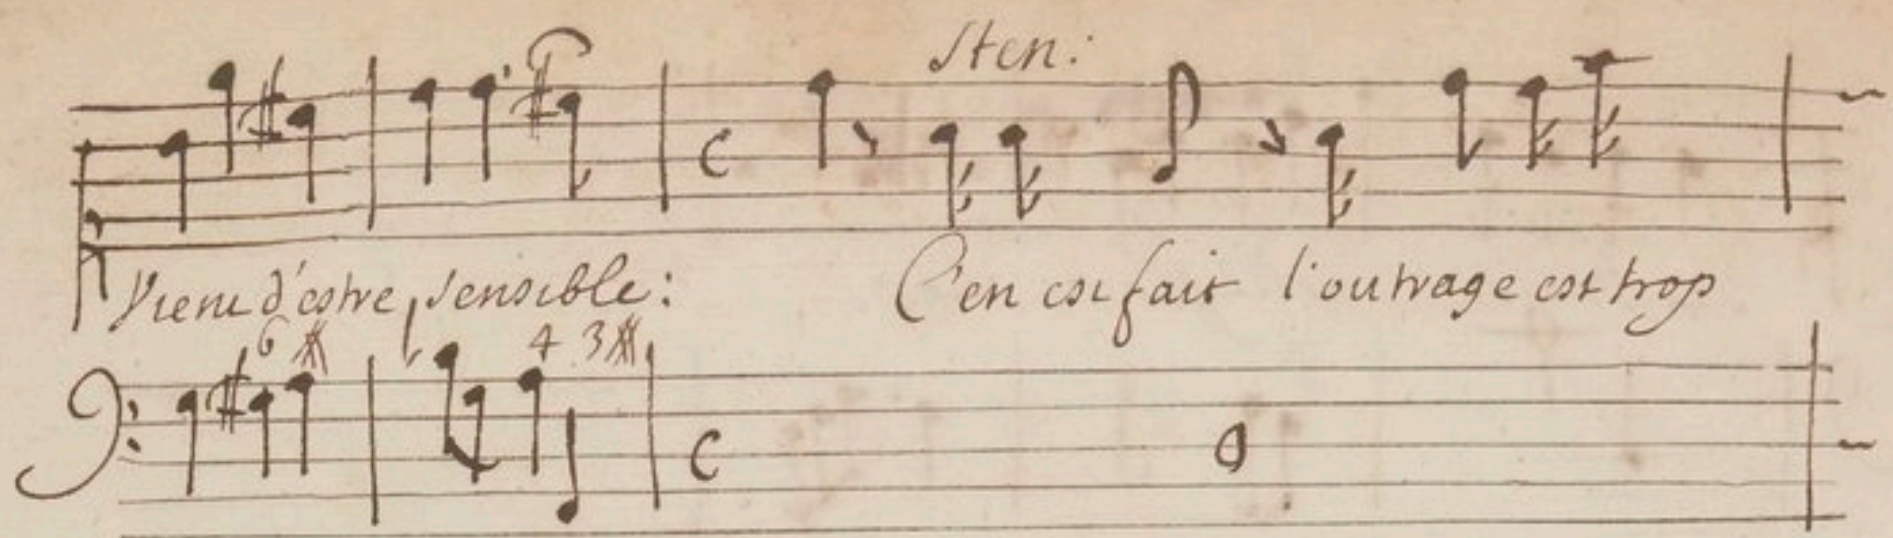 Sten:
Viene d'estre sensible: C'en est fait l'outrage est trop
6 4 3